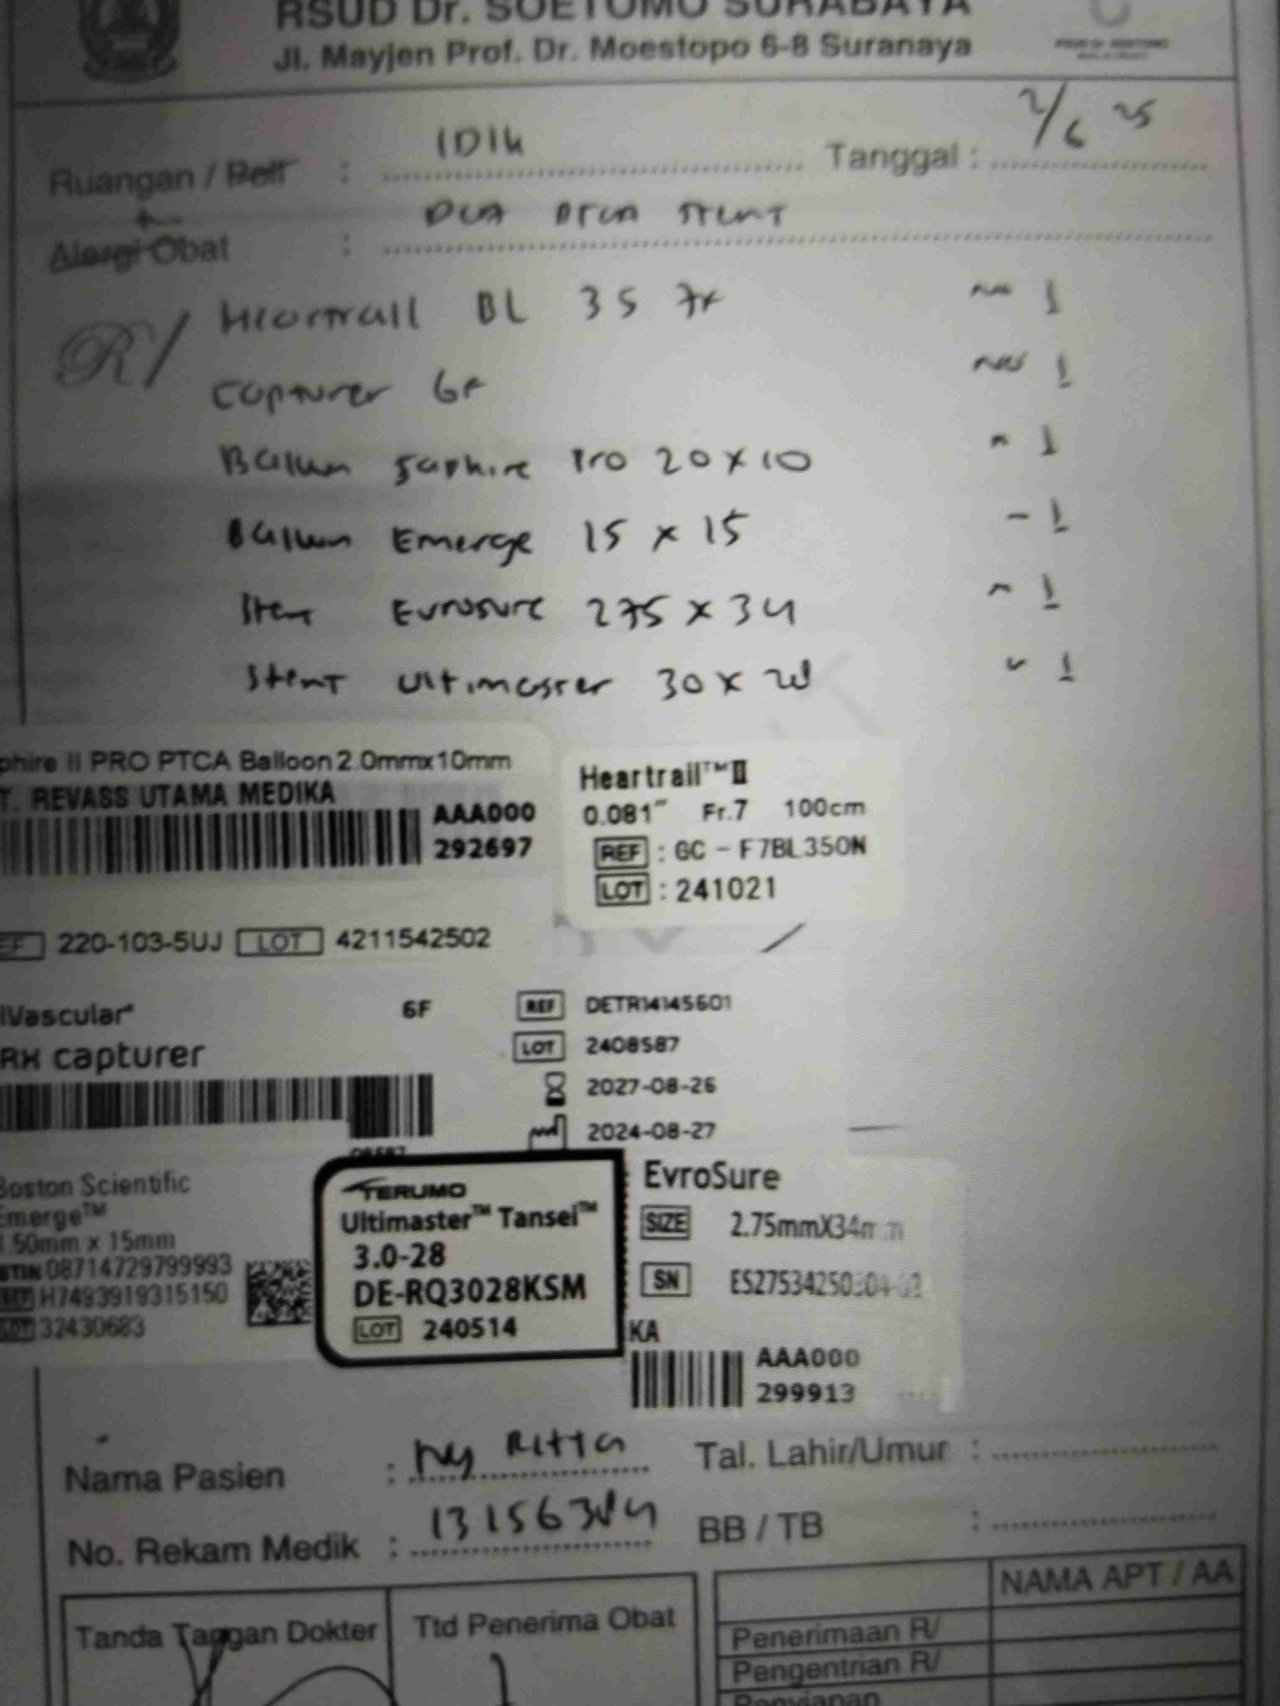 RSUD Dr. SOETOMO SURABAYA
Jl. Mayjen Prof. Dr. Moestopo 6-8 Suranaya
Ruangan / Poli : IDIK Tanggal : 2/6 25
Alergi Obat : DCA PTCA STENT
R/ Heartrail BL 35 7F no 1
Capturer 6F no 1
Ballun Saphire Pro 20 x 10 1
Ballun Emerge 15 x 15 1
Stent Evrosure 275 x 34 1
Stent Ultimaster 30 x 28 1
phire II PRO PTCA Balloon 2.0mmx10mm
T. REVASS UTAMA MEDIKA
AAA000
292697
Heartrail™ II
0.081" Fr.7 100cm
REF : GC - F7BL350N
LOT : 241021
EF 220-103-5UJ LOT 4211542502
iVascular 6F
RX capturer
REF DETR14145601
LOT 2408587
2027-08-26
2024-08-27
Boston Scientific
Emerge™
1.50mm x 15mm
GTIN 08714729799993
REF H7493919315150
LOT 32430683
TERUMO
Ultimaster™ Tansei™
3.0-28
DE-RQ3028KSM
LOT 240514
EvroSure
SIZE 2.75mmX34mm
SN
KA
AAA000
299913
Nama Pasien : Ny Ritta Tal. Lahir/Umur :
No. Rekam Medik : 13156384 BB / TB :
NAMA APT / AA
Tanda Tangan Dokter Ttd Penerima Obat
Penerimaan R/
Pengentrian R/
Penyiapan